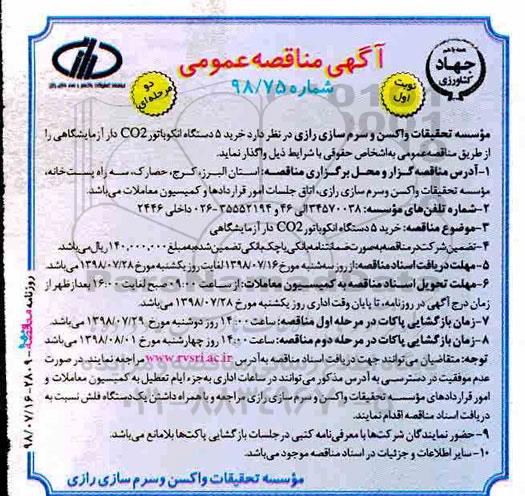 آگهی مناقصه عمومی
شماره ۹۸/۷۵
همه با هم
جهاد
کشاورزی
نوبت
اول
دو
مرحله‌ای
مؤسسه تحقیقات واکسن و سرم سازی رازی در نظر دارد خرید ۵ دستگاه انکوباتور CO2 دار آزمایشگاهی را
از طریق مناقصه عمومی به اشخاص حقوقی با شرایط ذیل واگذار نماید.
۱-آدرس مناقصه گزار و محل برگزاری مناقصه: استان البرز، کرج، حصارک، سه راه پست‌خانه،
مؤسسه تحقیقات واکسن وسرم سازی رازی، اتاق جلسات امور قراردادها و کمیسیون معاملات می‌باشد.
۲-شماره تلفن‌های مؤسسه: ۳۴۵۷۰۰۳۸ الی ۴۶ و ۳۵۵۵۲۱۹۴-۰۲۶ داخلی ۲۴۴۶
۳-موضوع مناقصه: خرید ۵ دستگاه انکوباتور CO2 دار آزمایشگاهی
۴-تضمین شرکت در مناقصه به صورت ضمانتنامه بانکی یا چک بانکی تضمین شده به مبلغ ۱۴۰,۰۰۰,۰۰۰ ریال می‌باشد.
۵-مهلت دریافت اسناد مناقصه: از روز سه‌شنبه مورخ ۱۳۹۸/۰۷/۱۶ لغایت روز یکشنبه مورخ ۱۳۹۸/۰۷/۲۸ می‌باشد.
۶-مهلت تحویل اسناد مناقصه به کمیسیون معاملات: از ساعت ۰۹:۰۰ صبح لغایت ۱۶:۰۰ بعدازظهر از
زمان درج آگهی در روزنامه، تا پایان وقت اداری روز یکشنبه مورخ ۱۳۹۸/۰۷/۲۸ می‌باشد.
۷-زمان بازگشایی پاکات در مرحله اول مناقصه: ساعت ۱۴:۰۰ روز دوشنبه مورخ ۱۳۹۸/۰۷/۲۹ می‌باشد.
۸-زمان بازگشایی پاکات در مرحله دوم مناقصه: ساعت ۱۴:۰۰ روز چهارشنبه مورخ ۱۳۹۸/۰۸/۰۱ می‌باشد
توجه: متقاضیان می‌توانند جهت دریافت اسناد مناقصه به آدرس www.rvsri.ac.ir مراجعه نمایند. در صورت
عدم موفقیت در دسترسی به آدرس مذکور می‌توانند در ساعات اداری به‌جزء ایام تعطیل به کمیسیون معاملات و
امور قراردادهای مؤسسه تحقیقات واکسن و سرم سازی رازی مراجعه و با همراه داشتن یک دستگاه فلش نسبت به
دریافت اسناد مناقصه اقدام نمایند.
۹-حضور نمایندگان شرکت‌ها با معرفی‌نامه کتبی در جلسات بازگشایی پاکت‌ها بلامانع می‌باشد.
۱۰- سایر اطلاعات و جزئیات در اسناد مناقصه موجود می‌باشد.
مؤسسه تحقیقات واکسن وسرم سازی رازی
روزنامه مناقصه ۲۸۰۹-۹۸/۰۷/۱۶